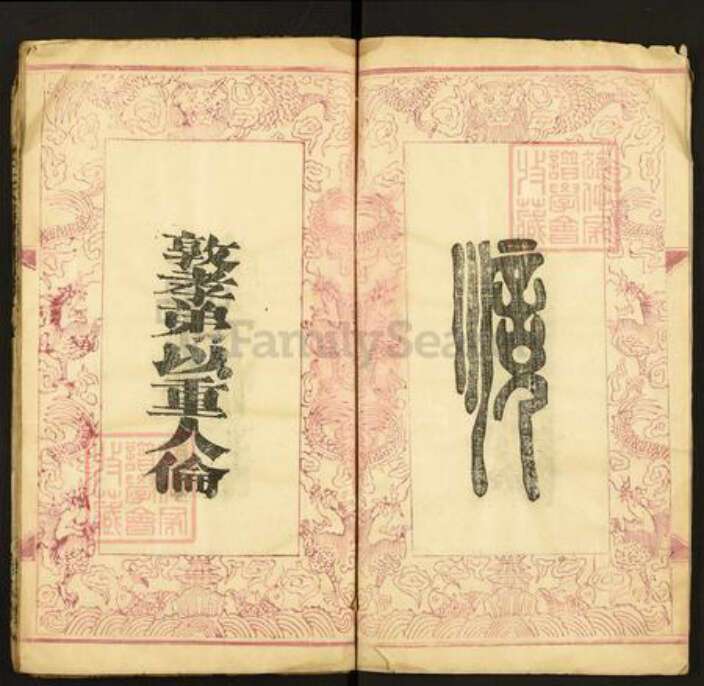 順
譜學會
收藏
敦孝弟以重人倫
譜學會
收藏
FamilySearch